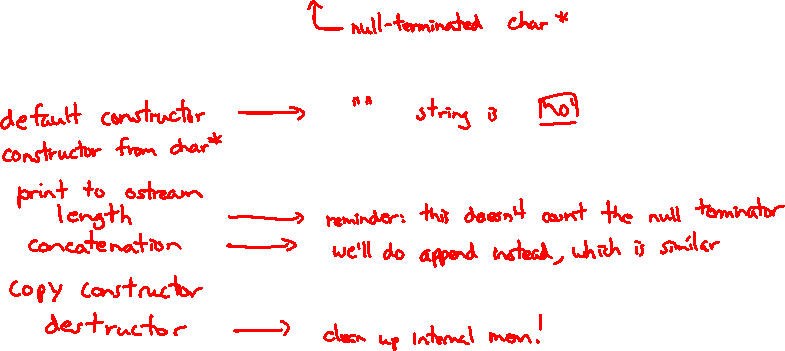 null-terminated char*
default constructor → "" string is '\0'
constructor from char*
print to ostream
length → reminder: this doesn't count the null terminator
concatenation → we'll do append instead, which is similar
copy constructor
destructor → clean up internal mem!